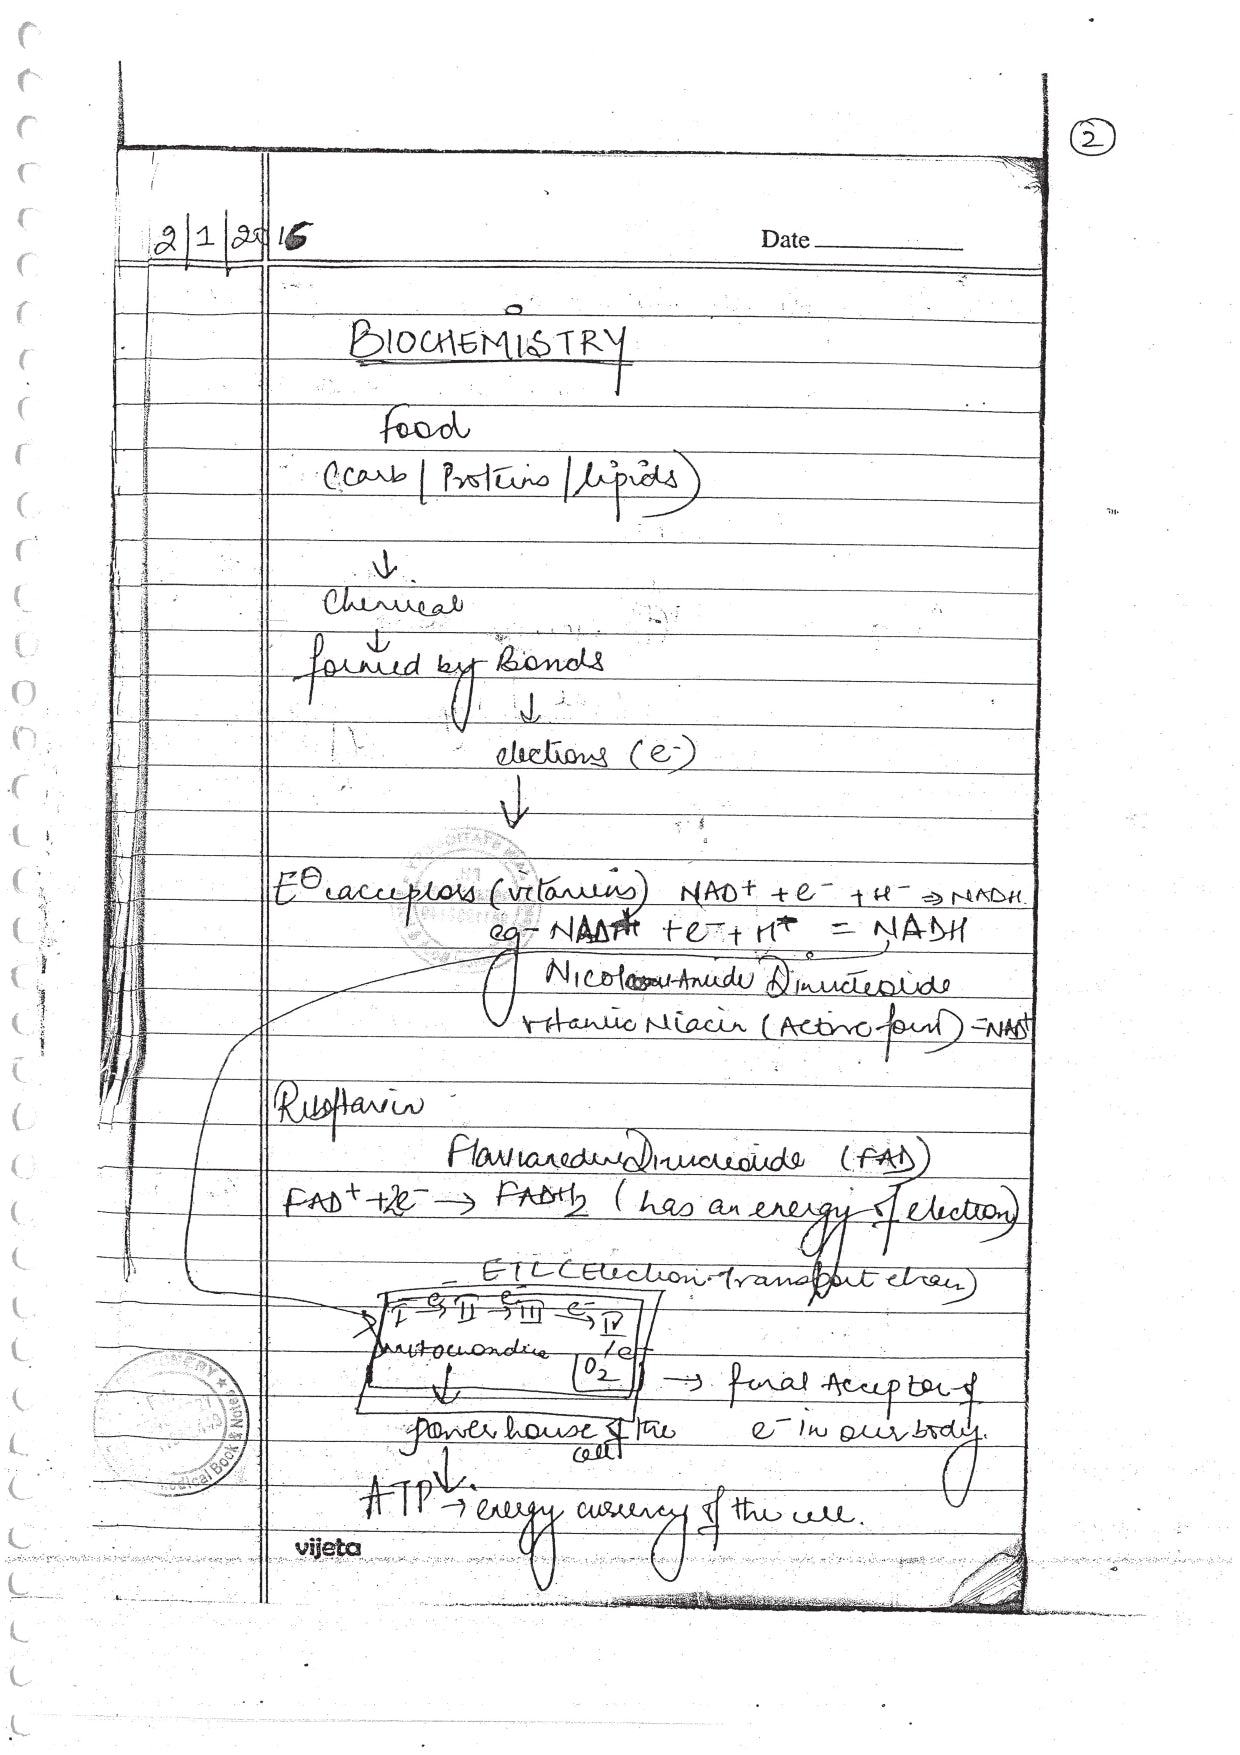 2
2/1/2016
Date
BIOCHEMISTRY
Food
(carb / Proteins / lipids)
↓
Chemical
↓
formed by Bonds
↓
electrons (e-)
↓
E⊖ acceptors (vitamins) NAD+ + e- + H- ⇒ NADH.
eg- + e- + H+ = NADH
Dinucleotide
vitamin Niacin (Active form) = NAD+
Riboflavin
Dinucleotide (FAD)
FAD+ + 2e- → FADH2 (has an energy of electron)
ETC (Electron Transport chain)
I e- → II e- → III e- → IV
mitochondria e-
O2 → final Acceptor of
↓
power house of the e- in our body.
cell
↓
ATP → energy currency of the cell.
vijeta
Medical Book & Notes